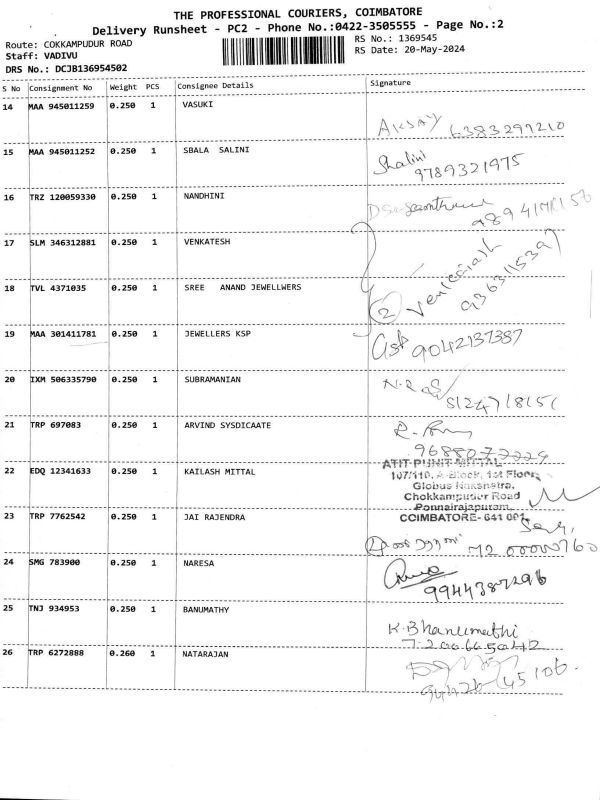 THE PROFESSIONAL COURIERS, COIMBATORE
Delivery Runsheet - PC2 - Phone No.:0422-3505555 - Page No.:2
Route: COKKAMPUDUR ROAD
RS No.: 1369545
Staff: VADIVU
RS Date: 20-May-2024
DRS No.: DCJB136954502
S No Consignment No Weight PCS Consignee Details Signature
14 MAA 945011259 0.250 1 VASUKI
AKSAY 6383299210
15 MAA 945011252 0.250 1 SBALA SALINI
Shalini
9789321975
16 TRZ 120059330 0.250 1 NANDHINI
17 SLM 346312881 0.250 1 VENKATESH
18 TVL 4371035 0.250 1 SREE ANAND JEWELLWERS
2
19 MAA 301411781 0.250 1 JEWELLERS KSP
9042137387
20 IXM 506335790 0.250 1 SUBRAMANIAN
21 TRP 697083 0.250 1 ARVIND SYSDICAATE
22 EDQ 12341633 0.250 1 KAILASH MITTAL
ATIT PUNIT MITTAL
107/110, A-Block, 1st Floor,
Globus Nakshatra,
Chokkampudur Road
Ponnairajapuram,
COIMBATORE- 641 001.
23 TRP 7762542 0.250 1 JAI RAJENDRA
24 SMG 783900 0.250 1 NARESA
9944387296
25 TNJ 934953 0.250 1 BANUMATHY
K. Bhanumathi
7200665042
26 TRP 6272888 0.260 1 NATARAJAN